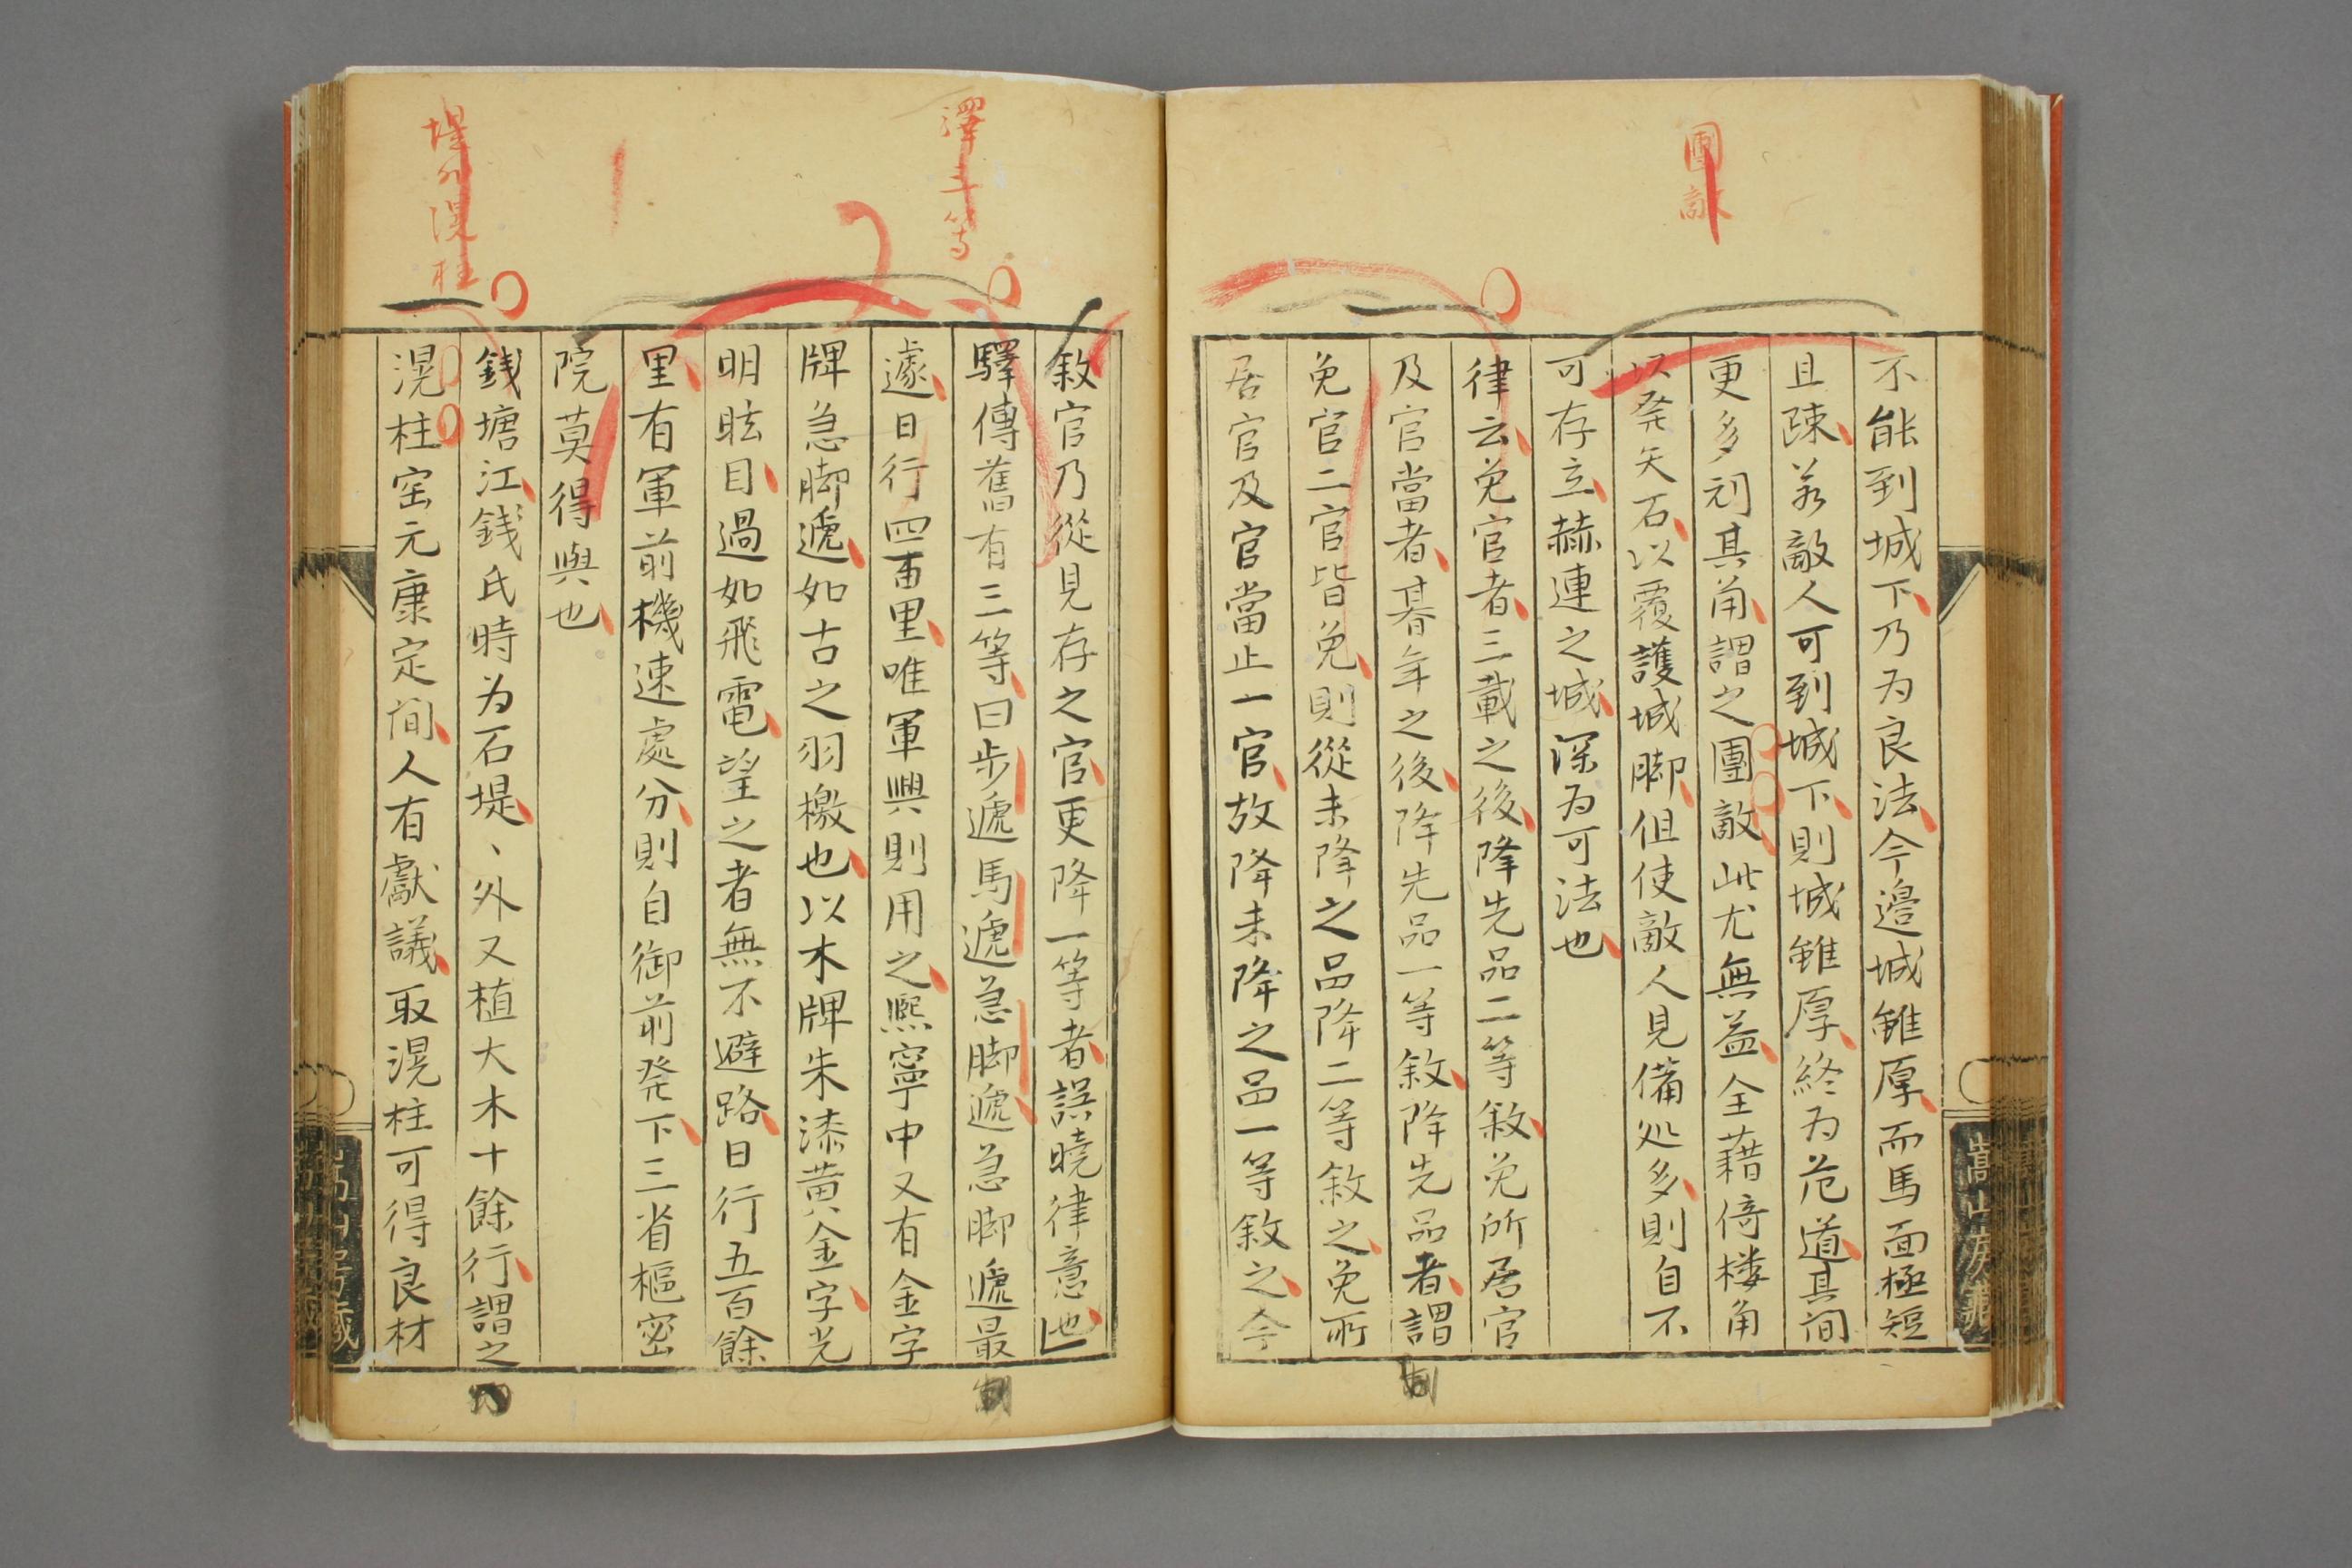 團敵
不能到城下乃为良法今邉城雖厚而馬面極短
且踈若敵人可到城下則城雖厚終为危道其间
更多刓其角謂之團敵此尤無益全藉倚楼角
以発矢石以覆護城脚但使敵人見備処多則自不
可存立赫連之城深为可法也
律云免官者三載之後降先品二等敘免所居官
及官當者朞年之後降先品一等敘降先品者謂
免官二官皆免則從未降之品降二等敘之免所
居官及官當止一官故降未降之品一等敘之今
嵩山房藏
驛三等
堤外滉柱
敘官乃從見存之官更降一等者誤曉律意也
驛傳舊有三等曰步遞馬遞急脚遞急脚遞最
遽日行四百里唯軍興則用之熙寧中又有金字
牌急脚遞如古之羽檄也以木牌朱漆黄金字光
明眩目過如飛電望之者無不避路日行五百餘
里有軍前機速處分則自御前発下三省樞密
院莫得與也
銭塘江銭氏時为石堤、外又植大木十餘行謂之
滉柱宝元康定间人有獻議取滉柱可得良材